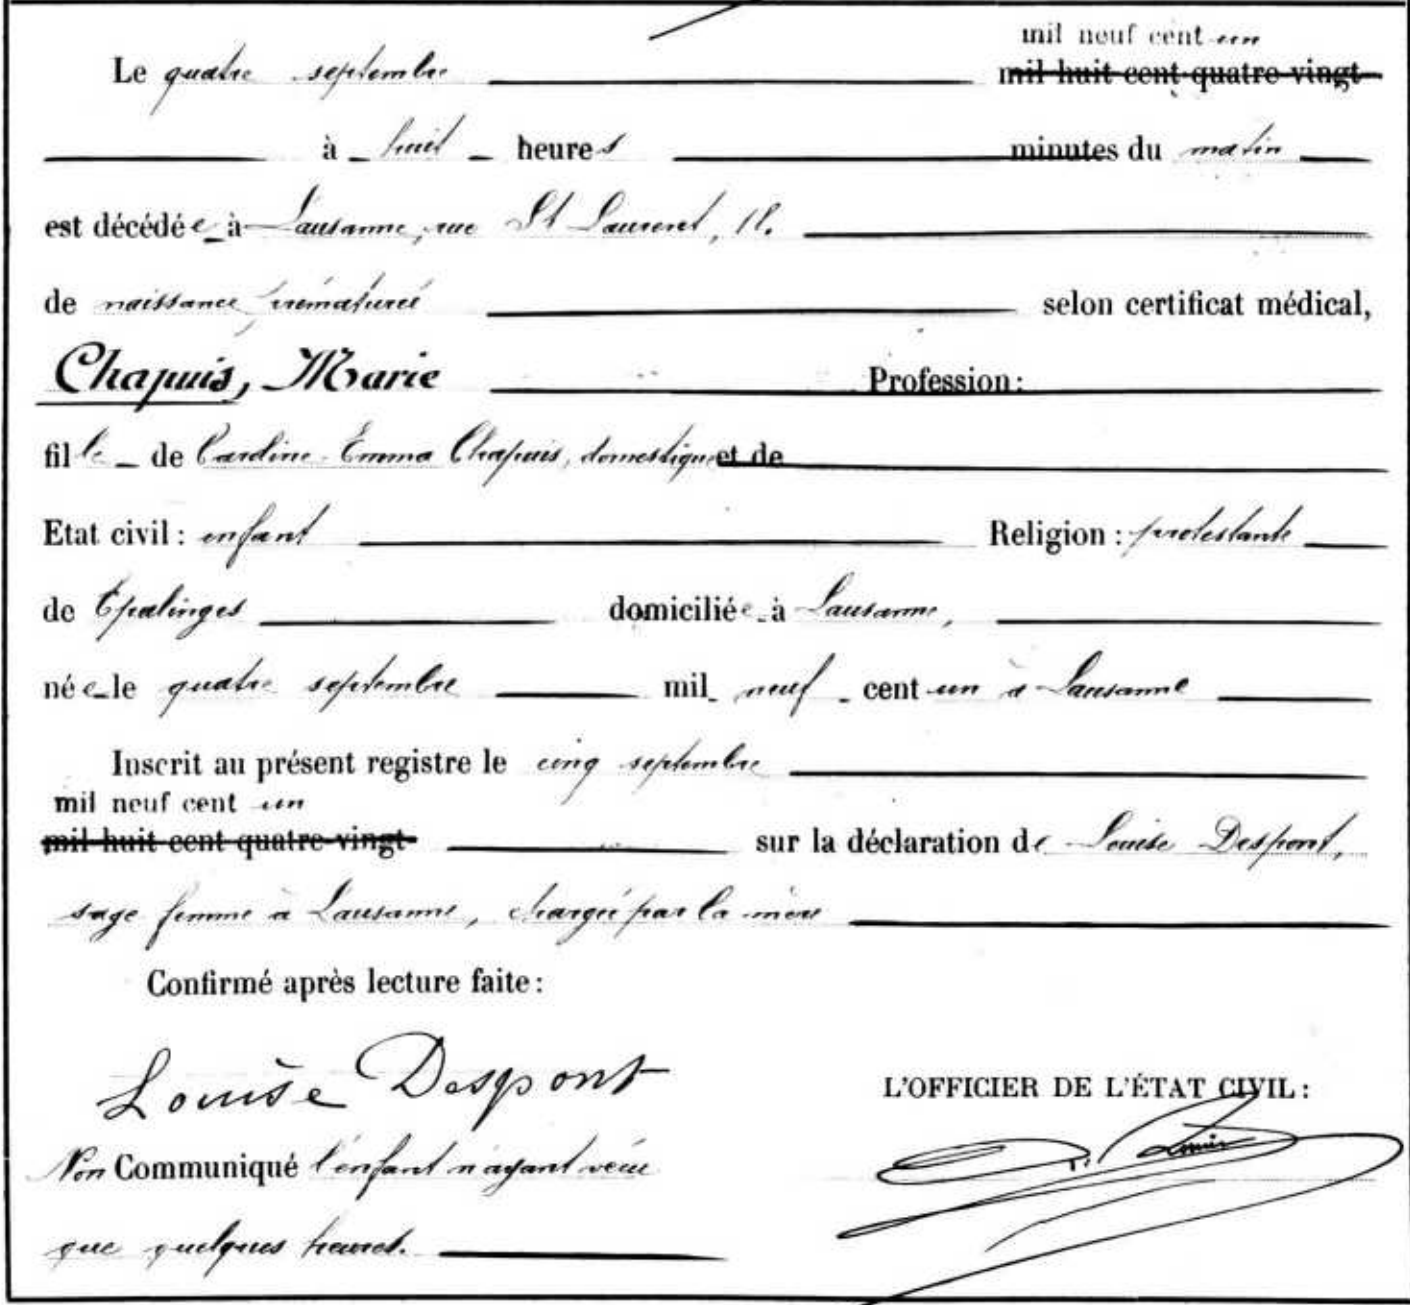 mil neuf cent un
Le quatre septembre mil huit cent quatre-vingt
à huit heures minutes du matin
est décédée à Lausanne, rue St Laurent, 18.
de naissance prématurée selon certificat médical,
Chapuis, Marie Profession:
fille de Caroline Emma Chapuis, domestique et de
Etat civil: enfant Religion: protestante
de Epalinges domiciliée à Lausanne,
née le quatre septembre mil neuf cent un à Lausanne
Inscrit au présent registre le cinq septembre
mil neuf cent un
mil huit cent quatre-vingt sur la déclaration de Louise Despont,
sage femme à Lausanne, chargée par la mère
Confirmé après lecture faite:
Louise Despont
L'OFFICIER DE L'ÉTAT CIVIL:
Non Communiqué l'enfant n'ayant vécu
que quelques heures.